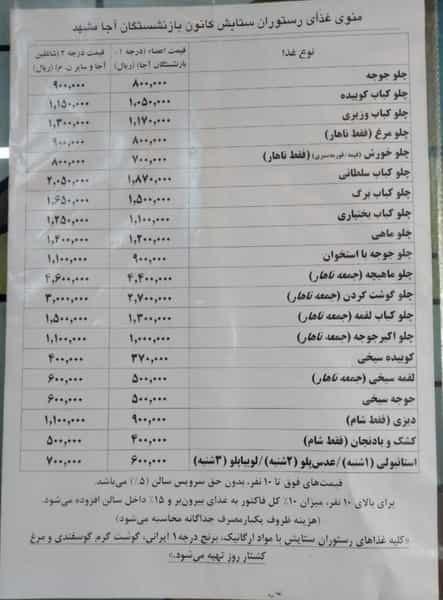 منوی غذای رستوران ستایش کانون بازنشستگان آجا مشهد
نوع غذا | قیمت اعضاء (درجه ۱- بازنشستگان آجا) (ریال) | قیمت درجه ۲ (شاغلین آجا و سایر ن.م) (ریال)
چلو جوجه | ۸۰۰,۰۰۰ | ۹۰۰,۰۰۰
چلو کباب کوبیده | ۱,۰۵۰,۰۰۰ | ۱,۱۵۰,۰۰۰
چلو کباب وزیری | ۱,۱۷۰,۰۰۰ | ۱,۳۰۰,۰۰۰
چلو مرغ (فقط ناهار) | ۸۰۰,۰۰۰ | ۹۰۰,۰۰۰
چلو خورش (قیمه/قورمه‌سبزی) (فقط ناهار) | ۷۰۰,۰۰۰ | ۸۰۰,۰۰۰
چلو کباب سلطانی | ۱,۸۷۰,۰۰۰ | ۲,۰۵۰,۰۰۰
چلو کباب برگ | ۱,۵۰۰,۰۰۰ | ۱,۶۵۰,۰۰۰
چلو کباب بختیاری | ۱,۱۰۰,۰۰۰ | ۱,۲۵۰,۰۰۰
چلو ماهی | ۱,۲۰۰,۰۰۰ | ۱,۴۰۰,۰۰۰
چلو جوجه با استخوان | ۹۰۰,۰۰۰ | ۱,۱۰۰,۰۰۰
چلو ماهیچه (جمعه ناهار) | ۴,۴۰۰,۰۰۰ | ۴,۶۰۰,۰۰۰
چلو گوشت گردن (جمعه ناهار) | ۲,۷۰۰,۰۰۰ | ۳,۰۰۰,۰۰۰
چلو کباب لقمه (جمعه ناهار) | ۱,۳۰۰,۰۰۰ | ۱,۵۰۰,۰۰۰
چلو اکبرجوجه (جمعه ناهار) | ۱,۰۰۰,۰۰۰ | ۱,۱۰۰,۰۰۰
کوبیده سیخی | ۳۷۰,۰۰۰ | ۴۰۰,۰۰۰
لقمه سیخی (جمعه ناهار) | ۵۰۰,۰۰۰ | ۶۰۰,۰۰۰
جوجه سیخی | ۵۰۰,۰۰۰ | ۶۰۰,۰۰۰
دیزی (فقط شام) | ۹۰۰,۰۰۰ | ۱,۱۰۰,۰۰۰
کشک و بادنجان (فقط شام) | ۴۰۰,۰۰۰ | ۵۰۰,۰۰۰
استانبولی (۱شنبه) /عدس‌پلو (۲شنبه) /لوبیاپلو (۳شنبه) | ۶۰۰,۰۰۰ | ۷۰۰,۰۰۰
قیمت‌های فوق تا ۱۰ نفر، بدون حق سرویس سالن (۵٪) می‌باشد.
برای بالای ۱۰ نفر، میزان ۱۰٪ کل فاکتور به غذای بیرون‌بر و ۱۵٪ داخل سالن افزوده می‌شود.
(هزینه ظروف یکبارمصرف جداگانه محاسبه می‌شود)
«کلیه غذاهای رستوران ستایش با مواد ارگانیک، برنج درجه۱ ایرانی، گوشت گرم گوسفندی و مرغ
کشتار روز تهیه می‌شود.»